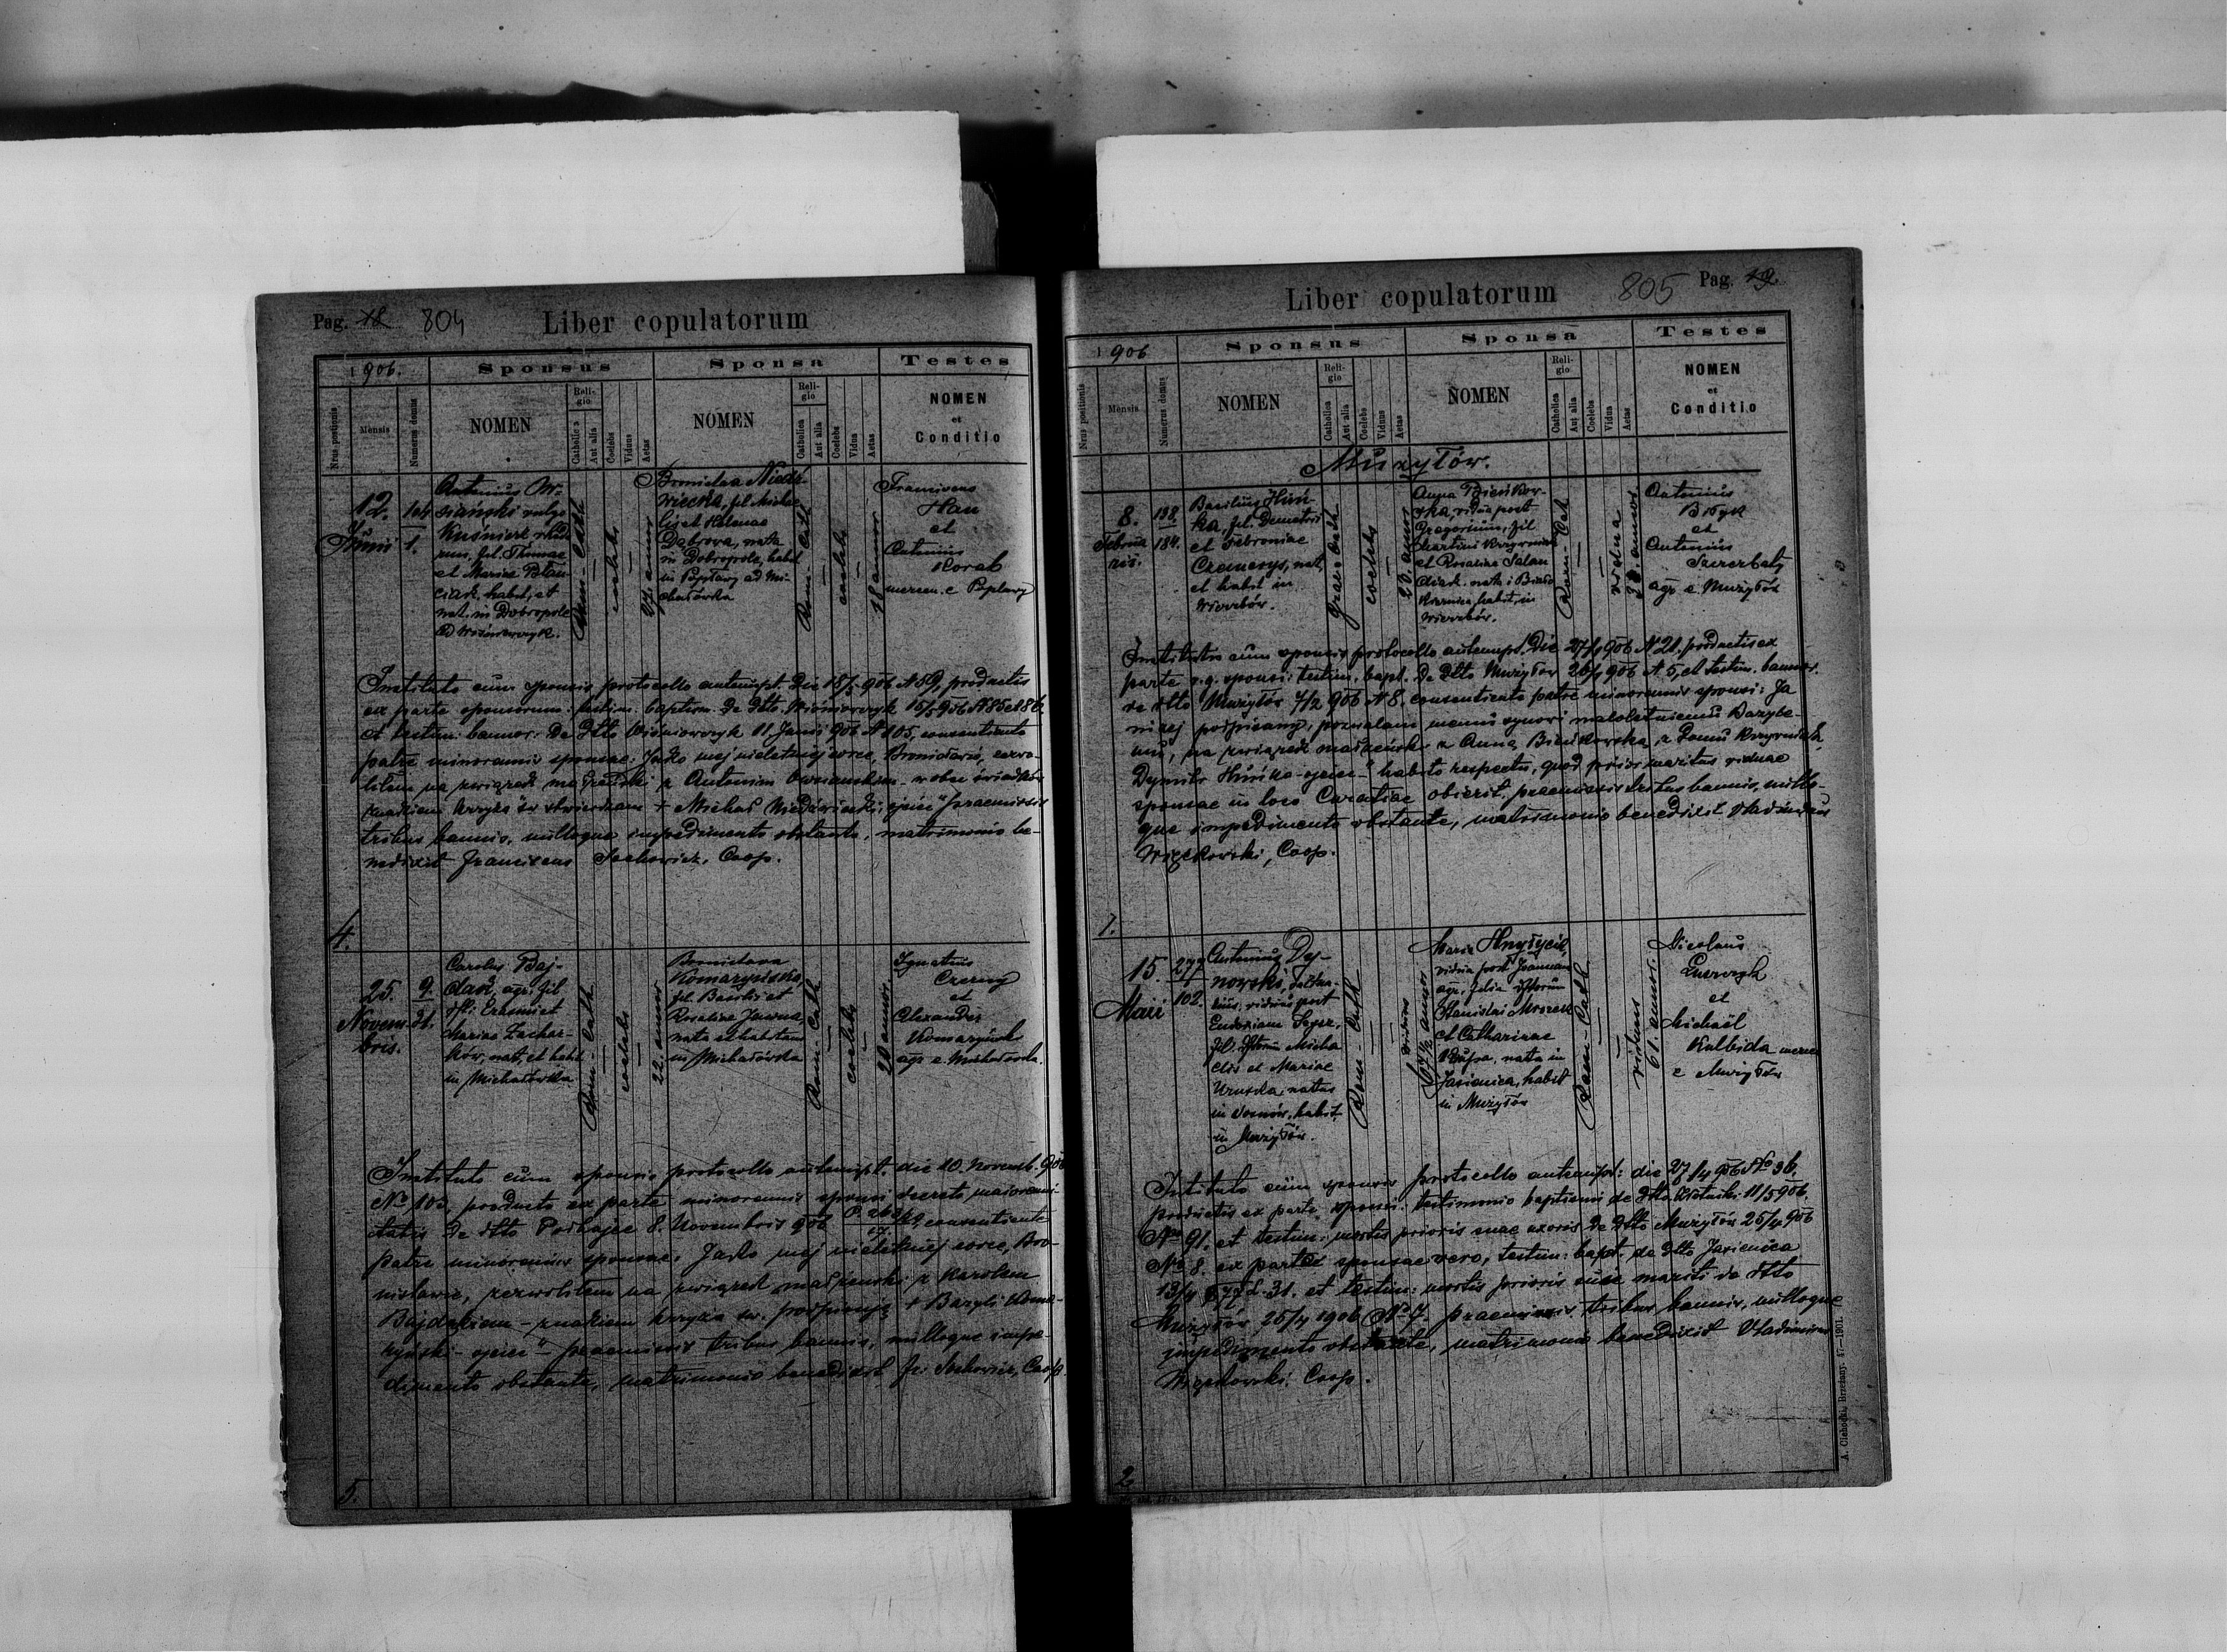 Pag. 18 804 Liber copulatorum
1906. Sponsus Sponsa Testes
Nrus positionis Mensis Numerus domus NOMEN Religio Catholica Aut alia Coelebs Viduus Aetas NOMEN Religio Catholica Aut alia Coelebs Vidua Aetas NOMEN et Conditio
12.
Junii
104
1.
Antonius
siański vulgo
Kuśnierz
rum, fil. Thomae
et Mariae
habit. et
nat. in Dobropole
ad Wiśniowczyk.
Rom-Cath
coelebs
27. annor
Bronislaa Niedź-
wiecka, fil. Michae
lis et Helenae
Dąbrowa, nata
in Dobropole, habit
in Popławy ad Mi-
chałówka
Rom-Cath
coelebs
18 annor
Franciscus
Hau
et
Antonius
Korab
mercen. e Popławy
Instituto cum sponsis protocollo antenupt. die 15/5 906 N 59, productis
ex parte sponsorum: testim. baptism. de dtto Wiśniowczyk 15/5 906 N 85 et 86.
et testim: bannor. de dtto Wiśniowczyk 11. Junii 906 N 105, consentiente
patre minorennis sponsae: Jako mej nieletniej córce, Bronisławie, zezwo-
liłem na związek małżeński z Antonim Owsiańskim - wobec świadków
znakiem krzyża św. stwierdzam + Michał Niedźwiecki ojciec" praemissis
tribus bannis, nulloque impedimento obstante, matrimonio be-
nedixit Franciscus Sochowicz, Coop.
4.
25.
Novem-
bris.
9.
21.
Carolus Baj-
dak, agr. fil
Erasmi et
Mariae Zachar-
ków, nat. et habit
in Michałówka
Rom-Cath
coelebs
22. annor
Bronislava
Komarzyńska,
fil. Basilii et
Rosaliae
nata et habitans
in Michałówka
Rom-Cath
coelebs
20 annor
Ignatius
Czerny
et
Alexander
Komarzyński
agr e Michałówka.
Instituto cum sponsis protocollo antenupt. die 10. Novemb. 906
No 103, producto ex parte minorennis sponsi decreto maiorenni-
tatis de dtto Podhajce 8. Novembris 906 consentiente
patre minorennis sponsae: Jako mej nieletniej córce, Bro-
nisławie, zezwoliłem na związek małżeński z Karolem
Bajdakiem - znakiem krzyża św. podpisuję + Bazyli Koma-
rzyński - ojciec" - praemissis tribus bannis, nulloque impe-
dimento obstante, matrimonio benedixit Fr. Sochowicz, Coop.
5.
Liber copulatorum 805 Pag. 19
1906 Sponsus Sponsa Testes
Nrus positionis Mensis Numerus domus NOMEN Religio Catholica Aut alia Coelebs Viduus Aetas NOMEN Religio Catholica Aut alia Coelebs Vidua Aetas NOMEN et Conditio
Mużyłów.
8.
Februa
rii.
188.
184.
Basilius Huń-
ka, fil. Demetrii
et Febroniae
nat.
et habit in
Wierzbów.
graec-Cath
coelebs
23. annor
Anna Bieńkow-
ska, vidua post
Gregorium, fil
Martini Krzywniak
et Rosaliae
nata
habit. in
Wierzbów.
Rom-Cat
vidua
annor
Antonius
Bryk
et
Antonius
agr e Mużyłów
Instituto cum sponsis protocollo antenupt. die 27/1 906 N 21. productis ex
parte r.g. sponsi: testim. bapt. de dtto Mużyłów 26/1 906 N 5, et testim. bannor.
de dtto Mużyłów 7/2 906 N 8. consentiente patre minorennis sponsi: Ja
niżej podpisany, pozwalam memu synowi małoletniemu Bazyle-
mu, na związek małżeński z Anną Bieńkowską, z domu Krzywniak
Dymitr Huńka - ojciec -" habito respectu, quod prior maritus viduae
sponsae in loco Curatiae obierit, praemissis tribus bannis, nullo-
que impedimento obstante, matrimonio benedixit Vladimirus
Więckowski, Coop.
1.
15.
Maii
277
102.
Antonius Dy-
nowski,
viduus post
Eudoxiam
fil. Micha
elis et Mariae
natus
in habit
in Mużyłów.
Rom-Cath
viduus
67 1/2 annor
Maria
vidua post Joannem
agr. filia
Stanislai Mrozek
et Catharinae
nata in
Jasienica, habit
in Mużyłów
Rom-Cath
vidua
61. annor.
Nicolaus
et
Michaël
Kulbida mercen
e Mużyłów
Instituto cum sponsis protocollo antenupt: die 27/4 906 No 36,
productis ex parte sponsi: testimonio baptismi de dtto 11/5 906.
No 91. et testim: mortis prioris suae uxoris de dtto Mużyłów 25/4 906
No 8. ex parte sponsae vero, testim: bapt. de dtto Jasienica
13/4 L. 31. et testim: mortis prioris sui mariti de dtto
Mużyłów 25/4 1906 No 7. praemissis tribus bannis, nulloque
impedimento obstante, matrimonio benedixit Vladimirus
Więckowski. Coop.
2
A. Clehocki, Brzeżany. 47—1901.